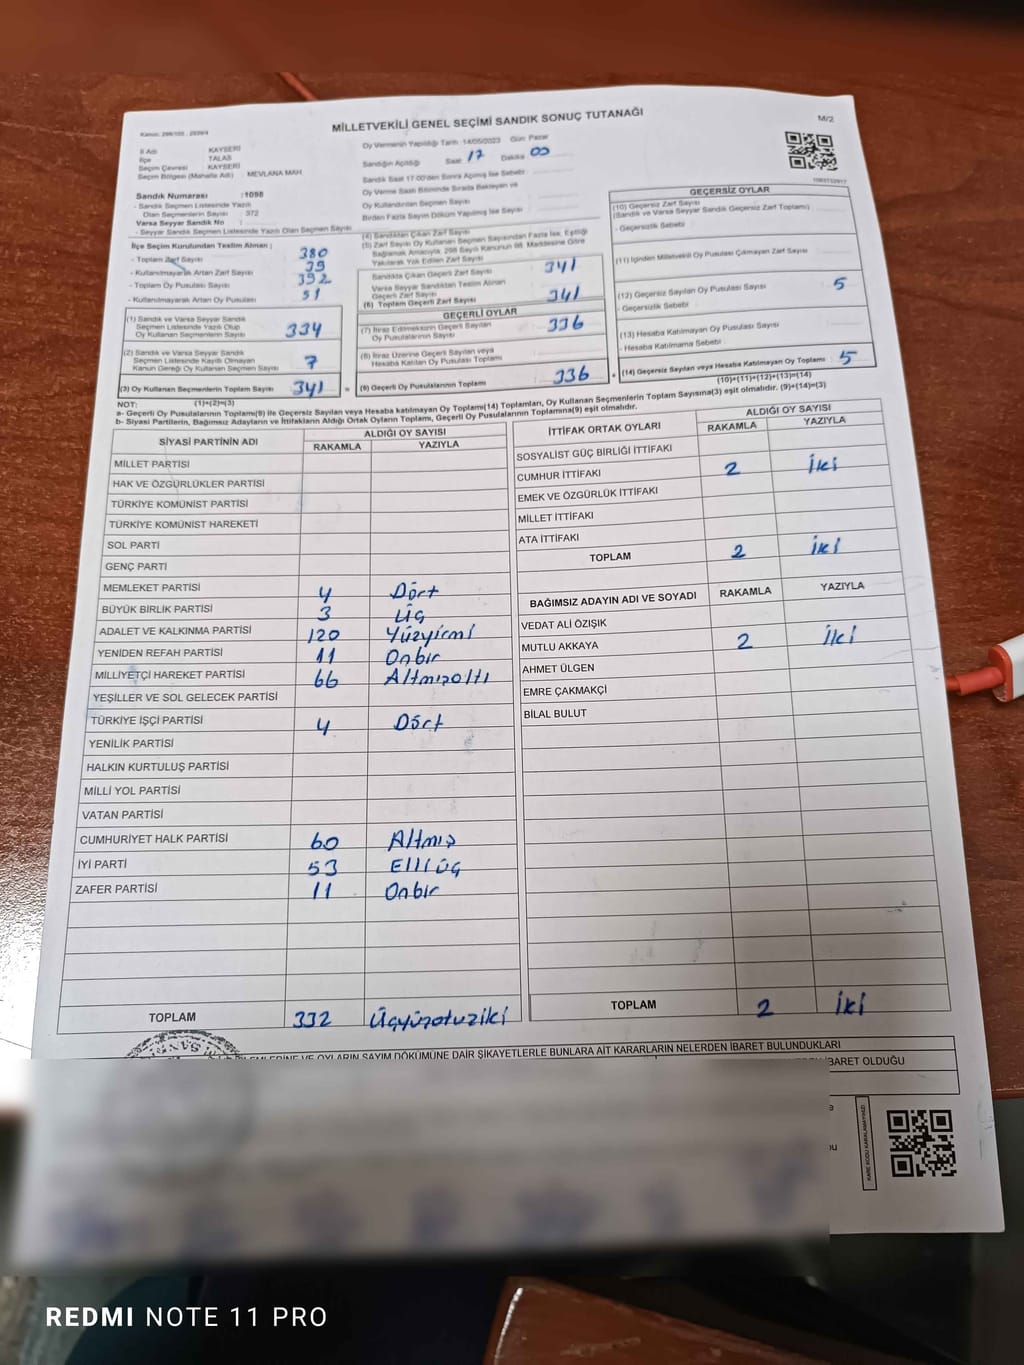 MİLLETVEKİLİ GENEL SEÇİMİ SANDIK SONUÇ TUTANAĞI
M/2
İl Adı KAYSERİ
İlçe TALAS
Seçim Çevresi KAYSERİ
Seçim Bölgesi (Mahalle Adı) MEVLANA MAH.
Oy Vermenin Yapıldığı Tarih :14/05/2023 Gün: Pazar
Sandığın Açıldığı Saat 17 Dakika 00
Sandık Saat 17:00'den Sonra Açılmış İse Sebebi :
Oy Verme Saati Bitiminde Sırada Bekleyen ve
Oy Kullandırılan Seçmen Sayısı
Birden Fazla Sayım Döküm Yapılmış İse Sayısı
Sandık Numarası :1098
- Sandık Seçmen Listesinde Yazılı
Olan Seçmenlerin Sayısı : 372
Varsa Seyyar Sandık No :
- Seyyar Sandık Seçmen Listesinde Yazılı Olan Seçmen Sayısı
İlçe Seçim Kurulundan Teslim Alınan ;
- Toplam Zarf Sayısı 380
- Kullanılmayarak Artan Zarf Sayısı 39
- Toplam Oy Pusulası Sayısı 392
- Kullanılmayarak Artan Oy Pusulası 51
(1) Sandık ve Varsa Seyyar Sandık
Seçmen Listesinde Yazılı Olup
Oy Kullanan Seçmenlerin Sayısı 334
(2) Sandık ve Varsa Seyyar Sandık
Seçmen Listesinde Kayıtlı Olmayan
Kanun Gereği Oy Kullanan Seçmen Sayısı 7
(3) Oy Kullanan Seçmenlerin Toplam Sayısı 341
(1)+(2)=(3)
(4) Sandıktan Çıkan Zarf Sayısı
(5) Zarf Sayısı Oy Kullanan Seçmen Sayısından Fazla İse, Eşitliği
Sağlamak Amacıyla, 298 Sayılı Kanunun 98. Maddesine Göre
Yakılarak Yok Edilen Zarf Sayısı
Sandıkta Çıkan Geçerli Zarf Sayısı 341
Varsa Seyyar Sandıktan Teslim Alınan
Geçerli Zarf Sayısı
(6) Toplam Geçerli Zarf Sayısı 341
GEÇERLİ OYLAR
(7) İtiraz Edilmeksizin Geçerli Sayılan
Oy Pusulalarının Sayısı 336
(8) İtiraz Üzerine Geçerli Sayılan veya
Hesaba Katılan Oy Pusulası Toplamı
(9) Geçerli Oy Pusulalarının Toplamı 336
GEÇERSİZ OYLAR
(10) Geçersiz Zarf Sayısı
(Sandık ve Varsa Seyyar Sandık Geçersiz Zarf Toplamı)
- Geçersizlik Sebebi
(11) İçinden Milletvekili Oy Pusulası Çıkmayan Zarf Sayısı
(12) Geçersiz Sayılan Oy Pusulası Sayısı 5
- Geçersizlik Sebebi
(13) Hesaba Katılmayan Oy Pusulası Sayısı
- Hesaba Katılmama Sebebi
(14) Geçersiz Sayılan veya Hesaba Katılmayan Oy Toplamı 5
(10)+(11)+(12)+(13)=(14)
NOT:
a- Geçerli Oy Pusulalarının Toplamı(9) ile Geçersiz Sayılan veya Hesaba katılmayan Oy Toplamı(14) Toplamları, Oy Kullanan Seçmenlerin Toplam Sayısına(3) eşit olmalıdır. (9)+(14)=(3)
b- Siyasi Partilerin, Bağımsız Adayların ve İttifakların Aldığı Ortak Oyların Toplamı, Geçerli Oy Pusulalarının Toplamına(9) eşit olmalıdır.
SİYASİ PARTİNİN ADI ALDIĞI OY SAYISI
RAKAMLA YAZIYLA
MİLLET PARTİSİ
HAK VE ÖZGÜRLÜKLER PARTİSİ
TÜRKİYE KOMÜNİST PARTİSİ
TÜRKİYE KOMÜNİST HAREKETİ
SOL PARTİ
GENÇ PARTİ
MEMLEKET PARTİSİ 4 Dört
BÜYÜK BİRLİK PARTİSİ 3 Üç
ADALET VE KALKINMA PARTİSİ 120 Yüzyirmi
YENİDEN REFAH PARTİSİ 11 Onbir
MİLLİYETÇİ HAREKET PARTİSİ 66 Altmışaltı
YEŞİLLER VE SOL GELECEK PARTİSİ
TÜRKİYE İŞÇİ PARTİSİ 4 Dört
YENİLİK PARTİSİ
HALKIN KURTULUŞ PARTİSİ
MİLLİ YOL PARTİSİ
VATAN PARTİSİ
CUMHURİYET HALK PARTİSİ 60 Altmış
İYİ PARTİ 53 Elliüç
ZAFER PARTİSİ 11 Onbir
TOPLAM 332 Üçyüzotuziki
İTTİFAK ORTAK OYLARI ALDIĞI OY SAYISI
RAKAMLA YAZIYLA
SOSYALİST GÜÇ BİRLİĞİ İTTİFAKI
CUMHUR İTTİFAKI 2 İki
EMEK VE ÖZGÜRLÜK İTTİFAKI
MİLLET İTTİFAKI
ATA İTTİFAKI
TOPLAM 2 İki
BAĞIMSIZ ADAYIN ADI VE SOYADI RAKAMLA YAZIYLA
VEDAT ALİ ÖZIŞIK
MUTLU AKKAYA 2 İki
AHMET ÜLGEN
EMRE ÇAKMAKÇİ
BİLAL BULUT
TOPLAM 2 İki
OYLARIN SAYIM DÖKÜMÜNE DAİR ŞİKAYETLERLE BUNLARA AİT KARARLARIN NELERDEN İBARET BULUNDUKLARI
İBARET OLDUĞU
REDMI NOTE 11 PRO